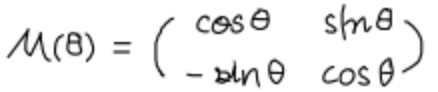 M(θ) = ( cosθ sinθ
-sinθ cosθ )